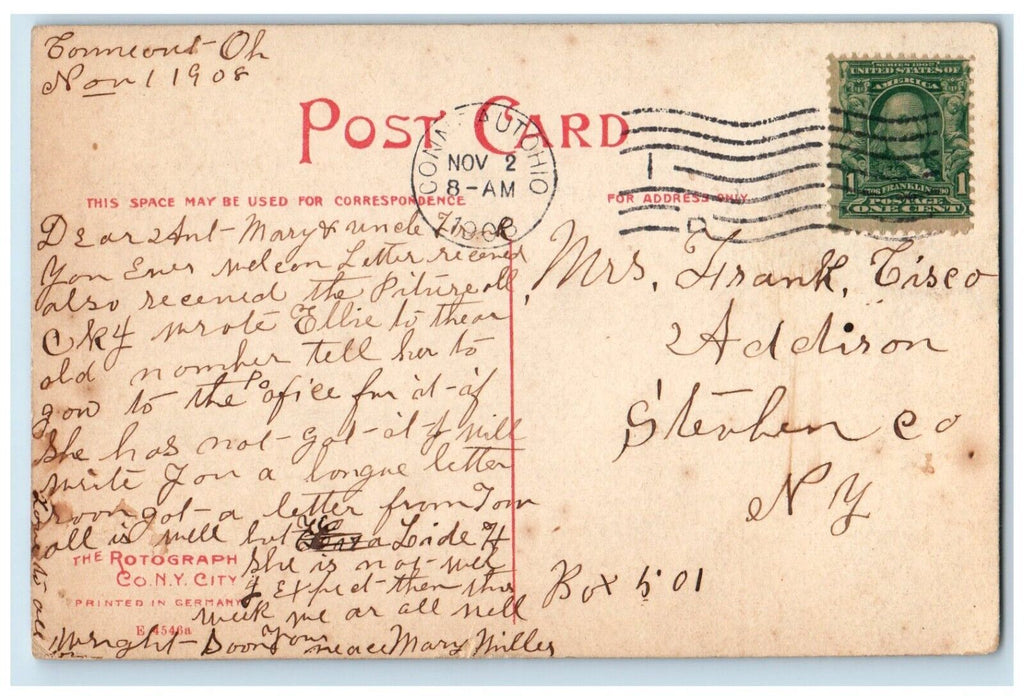 Conneout - Oh
Nov 1 1908
POST CARD
CONNEAUT OHIO
NOV 2
8-AM
1908
SERIES 1902
UNITED STATES OF
AMERICA
FRANKLIN
1 1
POSTAGE
ONE CENT
THIS SPACE MAY BE USED FOR CORRESPONDENCE
FOR ADDRESS ONLY
Dear Ant - Mary & uncle
you Ever welcon Letter receved
also receved the Piture all
O k y wrote Ellie to thear
old nomber tell her to
gow to the Po ofice for it - if
she has not - got - it - I will
write you a longue letter
soon got - a letter from Tom
all is well but a Lide H
She is not - well
I Expect - them this
week we ar all well
Wright - Soon Your neace Mary Miller
Mrs, Frank, Cisco
Addison
Steuben co
N Y
Box 501
THE ROTOGRAPH
CO. N.Y. CITY
PRINTED IN GERMANY
E 4546a